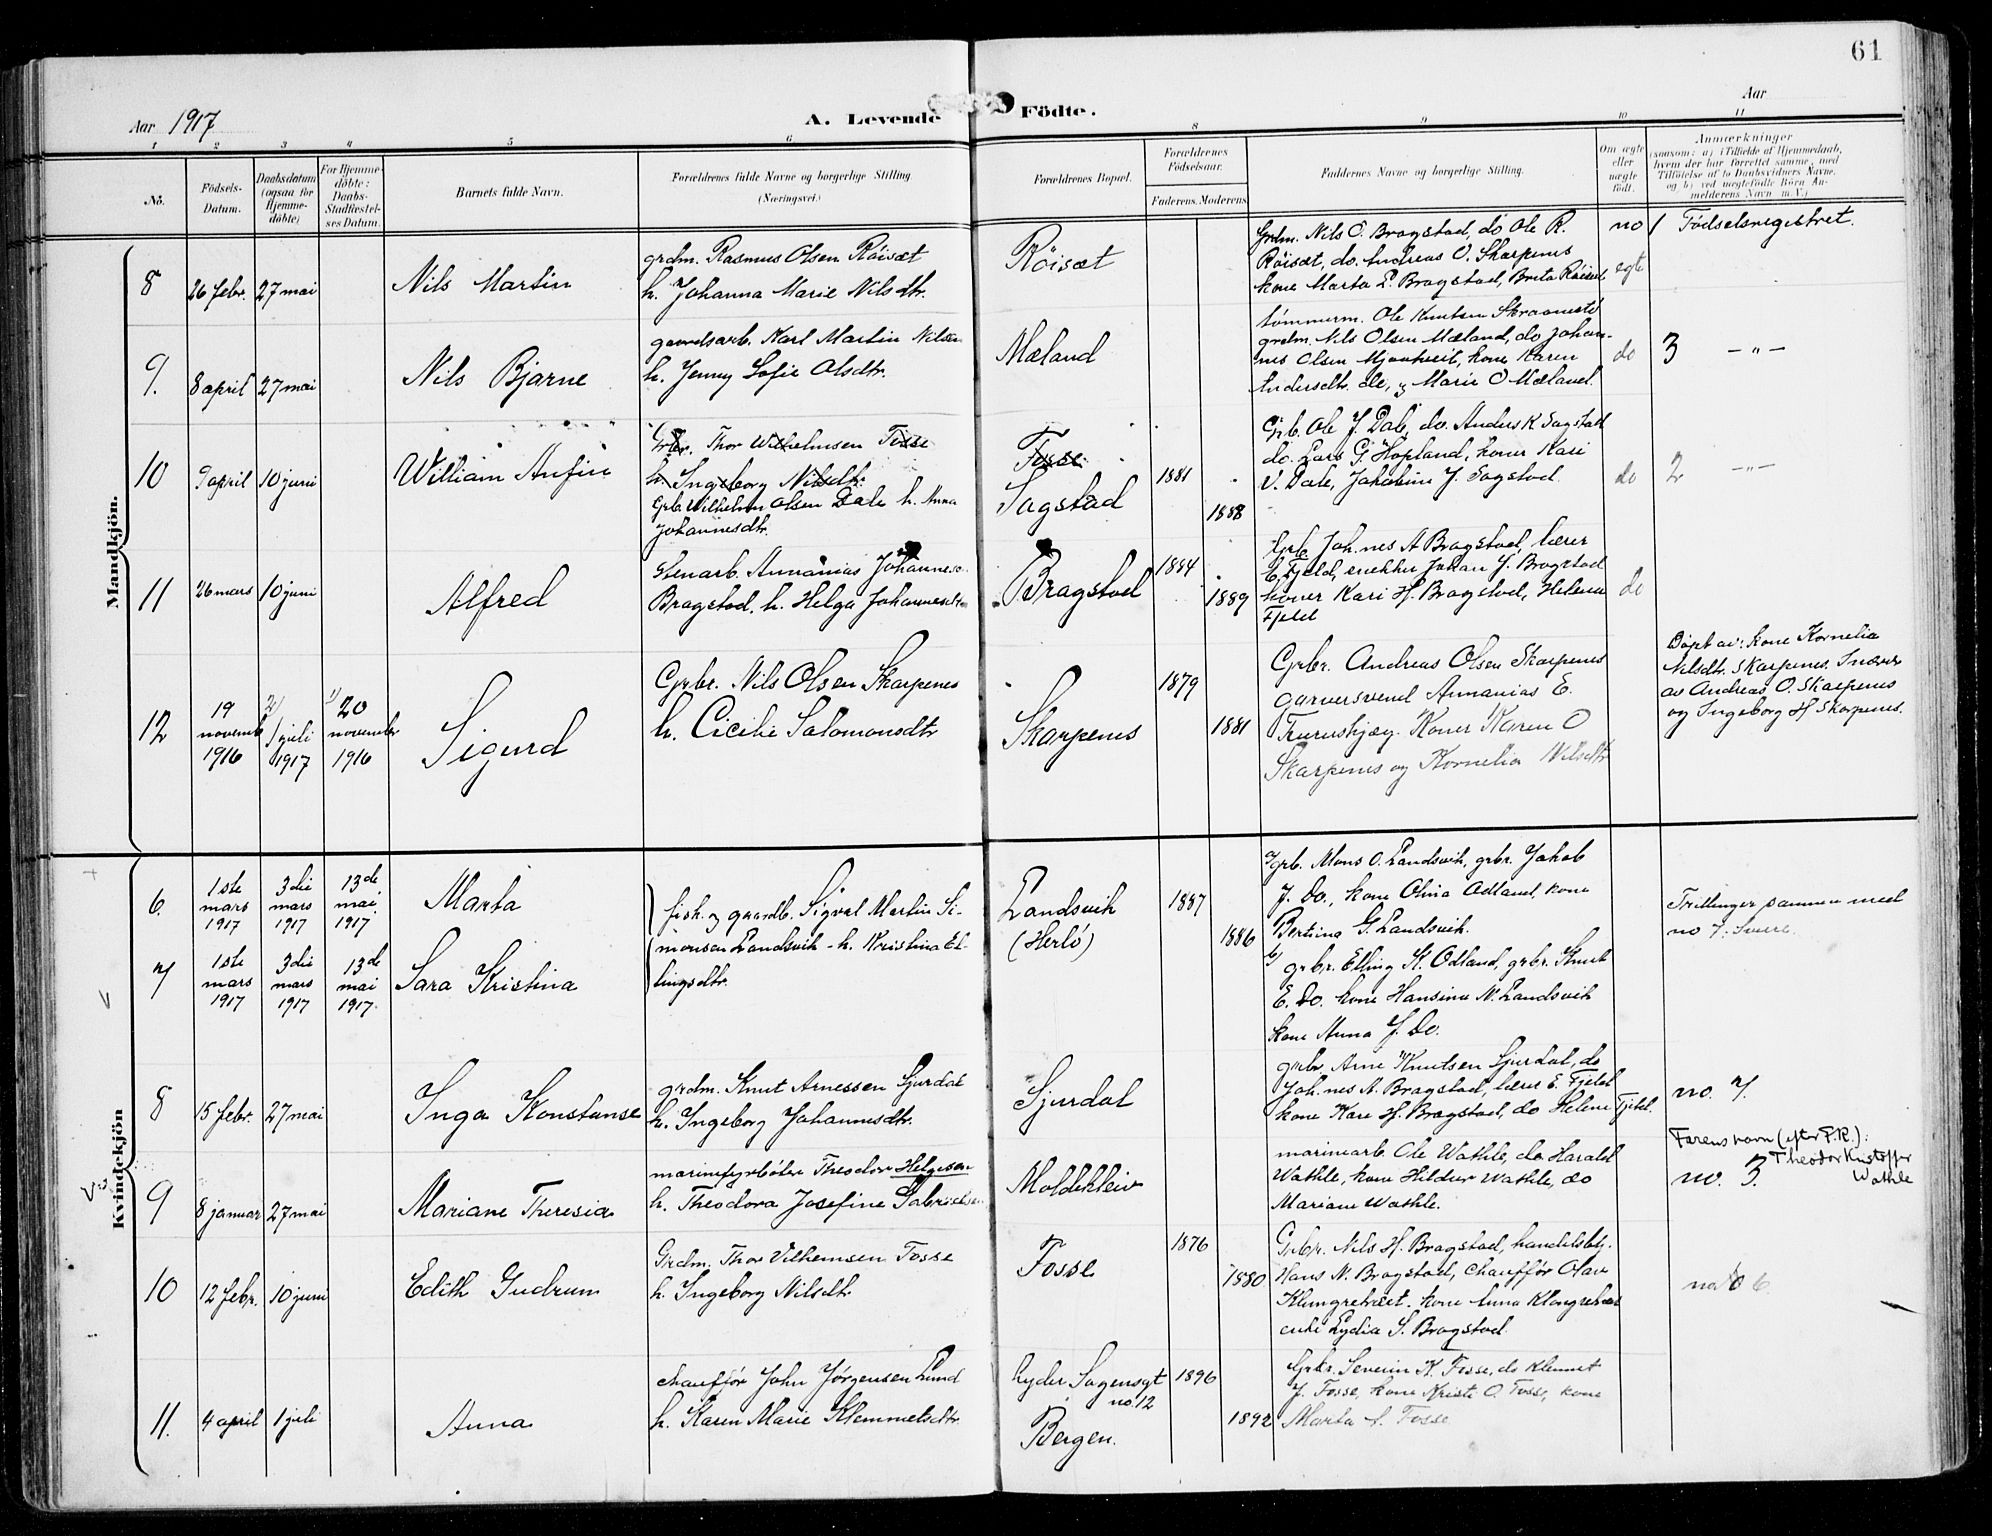 61
Aar 1917
A. Levende
Födte.
Aar
1 2 3 4 5 6 8 9 10 11
No.
Födsels-
Datum.
Daabsdatum
(ogsaa for
Hjemme-
döbte)
For Hjemme-
döbte:
Daabs-
Stadfæstel-
ses Datum
Barnets fulde Navn.
Forældrenes fulde Navne og borgerlige Stilling
(Næringsvei.)
Forældrenes Bopæl.
Forældrenes
Födselsaar.
Faderens. Moderens.
Faddernes Navne og borgerlige Stilling.
Om ægte
eller
uægte
födt.
Anmærkninger
(saasom: a) i Tilfælde af Hjemmedaab,
hvem der har forrettet samme, med
Tilföielse af to Daabsvidners Navne,
og b) ved uægtefödte Börn An-
melderens Navn m. V.)
Mandkjön.
8
26 febr.
27 mai
Nils Martin
grdm. Rasmus Olsen Röisæt
h. Johanna Marie Nilsdtr.
Röisæt
Grdm. Nils O. Bragstad, do Ole R.
Röisæt, do. Andreas O. Skarpenes
kone Marta L. Bragstad, Brita Röisæt
egte
no 1 Födselsregistret.
9.
8 april
27 mai
Nils Bjarne
gaardsarb. Karl Martin Nilsen
h. Jenny Sofie Olsdtr.
Mæland
tömmerm. Ole Knutsen
grdm. Nils Olsen Mæland, do Johan-
nes Olsen Mjaatveit, kone Karen
Andersdtr. do, og Marie O Mæland.
do
3 — „ —
10
9 april
10 juni
William Anfin
Thor Wilhelmsen Fosse
h. Ingeborg Nilsdtr.
Grb. Wilhelm Olsen Dale h. Anna
Johannesdtr.
Fosse
Sagstad
1881
1888
Grb. Ole J. Dale, do. Anders K Sagstad
do. Lars G. Hopland, koner Kari
V. Dale, Jakobine J. Sagstad.
do
2 — „ —
11
26 mars
10 juni
Alfred
Stenarb. Annanias Johannesen
Bragstad, h. Helga Johannesdtr
Bragstad
1884
1889
Grb. Joh.nes A Bragstad, lærer
E. Fjeld, snekker Johan J. Bragstad
koner Kari H. Bragstad, Helena
Fjeld
do
12
19
novemb
1916
2)
1 juli
1917
1)
20
november
1916
Sigurd
Grbr. Nils Olsen Skarpenes
h. Cicilie Salomonsdtr
Skarpenes
1879
1881
Grbr. Andreas Olsen Skarpenes
garversvend Annanias E.
Koner Karen O
Skarpenes og Kornelia Nilsdtr
Döpt av: kone Kornelia
Nilsdtr. Skarpenes.
av Andreas O. Skarpenes
og Ingeborg H Skarpenes.
Kvindekjön
6.
1ste
mars
1917
3die
mars
1917
13de
mai
1917
Marta
fisk. og gaardb. Sigval Martin Si-
monsen Landsvik - h. Kristina El-
lingsdtr.
Landsvik
(Herlö)
1887
1886
a) grb. Mons O. Landsvik, grbr. Jakob
J. Do., kone Olina Odland, kone
Bertina G. Landsvik.
Trillinger sammen med
no 7: Sverre.
7
1ste
mars
1917
3die
mars
1917
13de
mai
1917.
Sara Kristina
b) grbr. Elling K. Odland, grbr. Knut
E. Do. kone Hansina N. Landsvik
kone Anna J. Do.
8
15 febr.
27 mai
Inga Konstanse
grdm. Knut Arnessen Sjurdal
h. Ingeborg Johannesdtr.
Sjurdal
grbr. Arne Knutsen Sjurdal, do
Joh.nes A. Bragstad, lærer E. Fjeld
kone Kari H. Bragstad, do Helene Fjeld.
no. 7.
9
8 januar
27 mai
Mariane Theresia
marinefyrböter Theodor Helgesen
h. Theodora Josefine Gabrielsen
Moldekleiv
marinearb. Ole Wathle, do Harald
Wathle, kone Hildur Wathle, do
Mariane Wathle.
Farens navn (efter F.R.):
Theodor Kristoffer
Wathle
no. 3.
10
12 febr.
10 juni
Edith Gudrun
Grdm. Thor Vilhemsen Fosse
h. Ingeborg Nilsdtr.
Fosse
1876
1880
Grbr. Nils H. Bragstad, handelsbtj.
Hans N. Bragstad, chaufför Olav
kone Anna
enke Lydia S. Bragstad.
no 6
11.
4 april
1 juli
Anna
chaufför John Jörgensen Lund
h. Karen Marie Klemmetsdtr.
Lyder Sagensgt
no. 12
Bergen.
1896
1892
Grbr. Severin K. Fosse, do Klemmet
J. Fosse, kone Kristi O. Fosse, kone
Marta A. Fosse